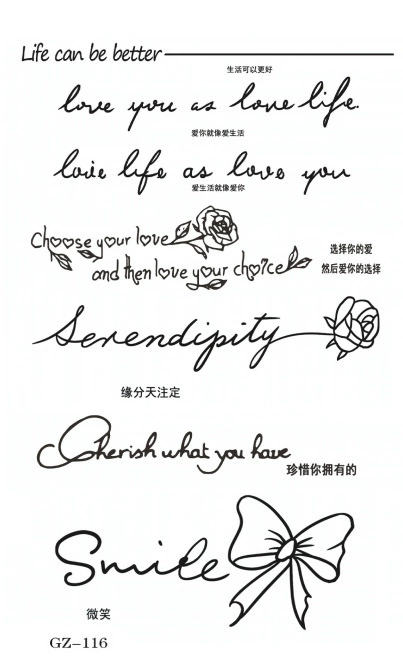 Life can be better
生活可以更好
love you as love life.
爱你就像爱生活
love life as love you
爱生活就像爱你
choose your love
选择你的爱
and then love your choice
然后爱你的选择
Serendipity
缘分天注定
Cherish what you have
珍惜你拥有的
Smile
微笑
GZ-116